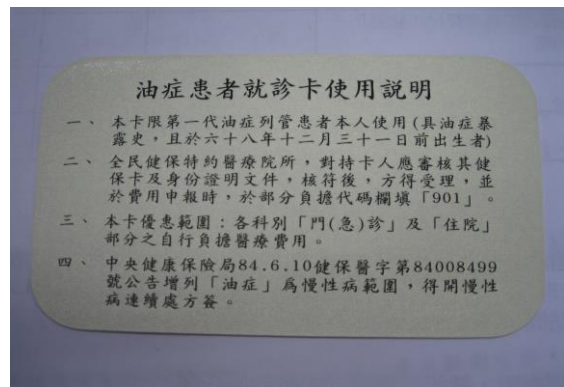 油症患者就診卡使用説明
一、本卡限第一代油症列管患者本人使用(具油症暴
露史，且於六十八年十二月三十一日前出生者)
二、全民健保特約醫療院所，對持卡人應審核其健
保卡及身份證明文件，核符後，方得受理，並
於費用申報時，於部分負擔代碼欄填「901」。
三、本卡優惠範圍：各科別「門(急)診」及「住院」
部分之自行負擔醫療費用。
四、中央健康保險局84.6.10健保醫字第84008499
號公告增列「油症」爲慢性病範圍，得開慢性
病連續處方簽。